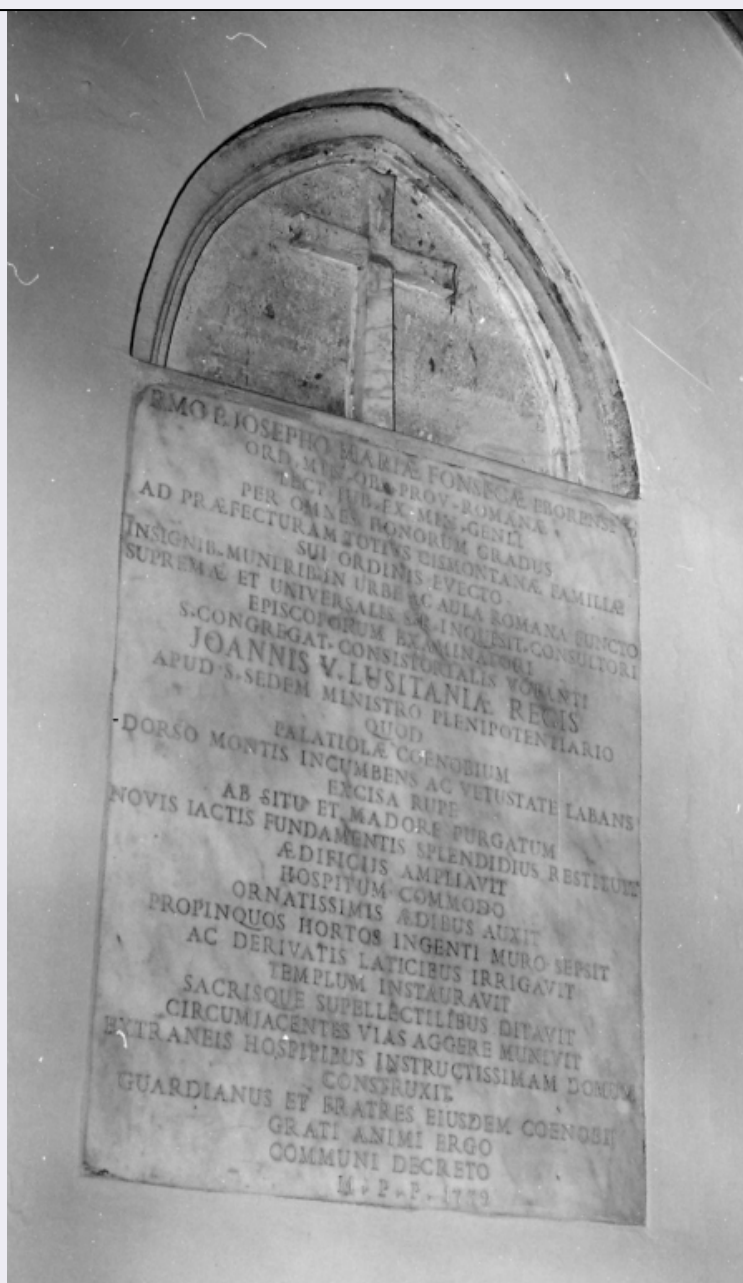 RMO P. JOSEPHO MARIÆ FONSECÆ EBORENSI
ORD. MIN. OBS. PROV. ROMANÆ
LECT. JUB. EX. MIN. GENLI
PER OMNES HONORUM GRADUS
AD PRÆFECTURAM TOTIVS CISMONTANÆ FAMILIÆ
SUI ORDINIS EVECTO
INSIGNIB. MUNERIB. IN URBE AC AULA ROMANA FUNCTO
SUPREMÆ ET UNIVERSALIS S. R. INQUISIT. CONSULTORI
EPISCOPORUM EXAMINATORI
S. CONGREGAT. CONSISTORIALIS VOTANTI
JOANNIS V. LUSITANIÆ REGIS
APUD S. SEDEM MINISTRO PLENIPOTENTIARIO
QUOD
PALATIOLÆ COENOBIUM
DORSO MONTIS INCUMBENS AC VETUSTATE LABANS
EXCISA RUPE
AB SITU ET MADORE PURGATUM
NOVIS IACTIS FUNDAMENTIS SPLENDIDIUS RESTITUIT
ÆDIFICIIS AMPLIAVIT
HOSPITUM COMMODO
ORNATISSIMIS ÆDIBUS AUXIT
PROPINQUOS HORTOS INGENTI MURO SEPSIT
AC DERIVATIS LATICIBUS IRRIGAVIT
TEMPLUM INSTAURAVIT
SACRISQUE SUPELLECTILIBUS DITAVIT
CIRCUMJACENTES VIAS AGGERE MUNIVIT
EXTRANEIS HOSPITIBUS INSTRUCTISSIMAM DOMUM
CONSTRUXIT
GUARDIANUS ET FRATRES EIUSDEM COENOBII
GRATI ANIMI ERGO
COMMUNI DECRETO
M. P. P. 1779